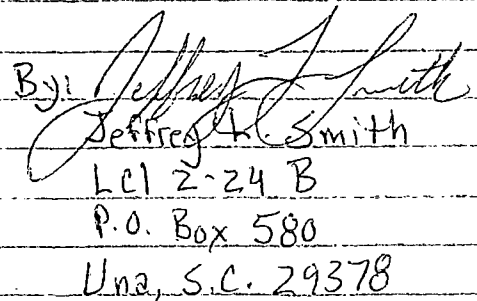 By: Jeffrey L Smith
Jeffrey L. Smith
LCI 2-24 B
P.O. Box 580
Una, S.C. 29378